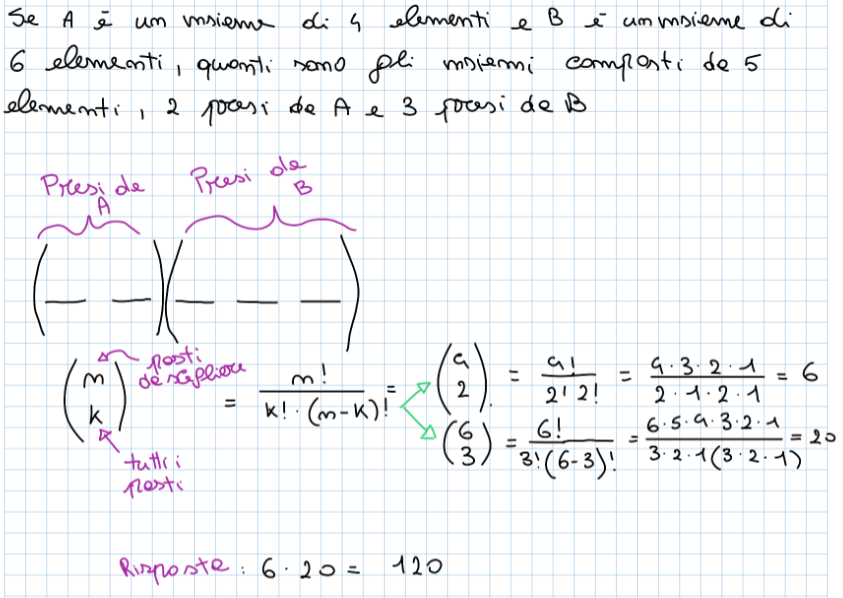 Se A è un insieme di 4 elementi e B è un insieme di
6 elementi, quanti sono gli insiemi composti da 5
elementi, 2 presi da A e 3 presi da B
Presi da A
Presi da B
(_ _)(_ _ _)
posti da scegliere
(n k) = n! / k! · (n-k)! =
tutti i posti
(4 2). = 4! / 2! 2! = 4 · 3 · 2 · 1 / 2 · 1 · 2 · 1 = 6
(6 3) = 6! / 3! (6-3)! = 6 · 5 · 4 · 3 · 2 · 1 / 3 · 2 · 1 (3 · 2 · 1) = 20
Risposta : 6 · 20 = 120